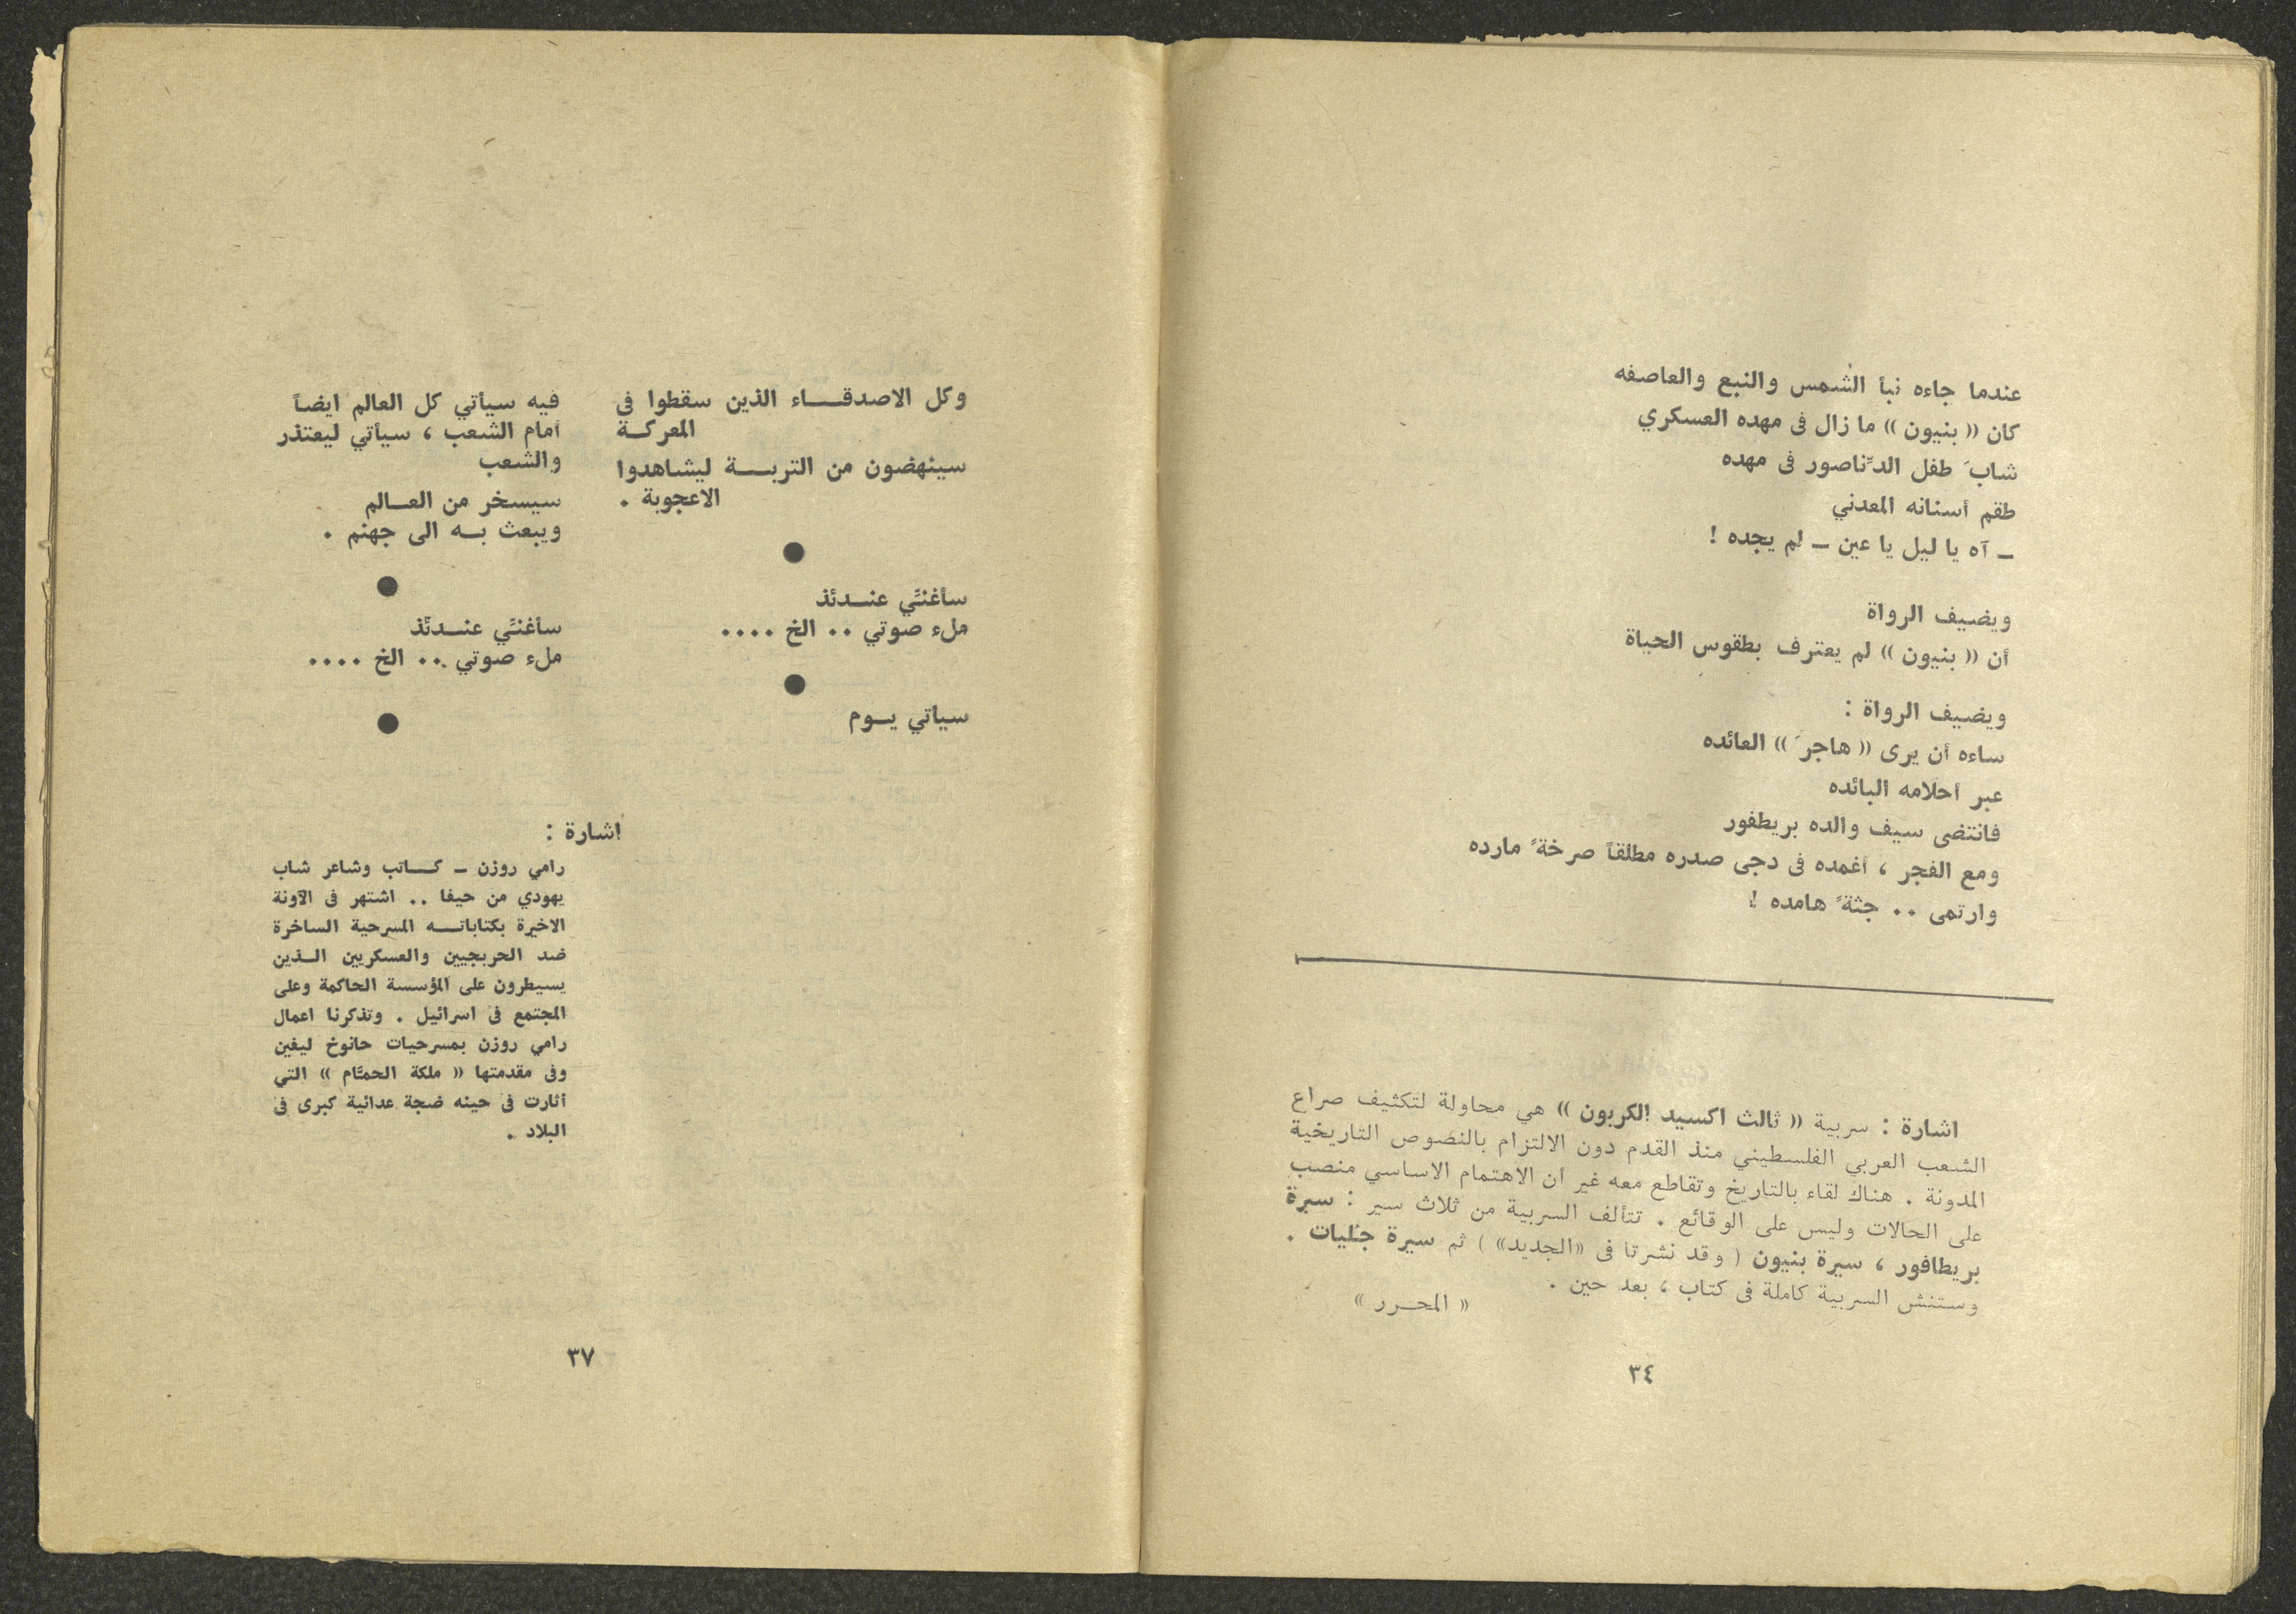 عندما جاءه نبأ الشمس والنبع والعاصفه
كان « بنيون » ما زال في مهده العسكري
شابَ طفل الدِّناصور في مهده
طقم أسنانه المعدني
ـ آه يا ليل يا عين ـ لم يجده !
ويضيف الرواة
أن « بنيون » لم يعترف بطقوس الحياة
ويضيف الرواة :
ساءه أن يرى « هاجرَ » العائده
عبر أحلامه البائده
فانتضى سيف والده بريطفور
ومع الفجر ، أغمده في دجى صدره مطلقاً صرخةً مارده
وارتمى .. جثةً هامده !
اشارة : سربية « ثالث اكسيد الكربون » هي محاولة لتكثيف صراع
الشعب العربي الفلسطيني منذ القدم دون الالتزام بالنصوص التاريخية
المدونة . هناك لقاء بالتاريخ وتقاطع معه غير أن الاهتمام الاساسي منصب
على الحالات وليس على الوقائع . تتألف السربية من ثلاث سير : سيرة
بريطافور ، سيرة بنيون ( وقد نشرتا في «الجديد» ) ثم سيرة جليات .
وستنش السربية كاملة في كتاب ، بعد حين .
« المحـرر »
٣٤
وكل الاصدقـــاء الذين سقطوا في
المعركـة
سينهضون من التربـــة ليشاهدوا
الاعجوبة .
●
سأغنّي عنـــدئذ
ملء صوتي .. الخ ....
●
سياتي يــوم
فيه سيأتي كل العالم ايضاً
أمام الشعب ، سيأتي ليعتذر
والشعب
سيسخر من العــالم
ويبعث بــه الى جهنم .
●
سأغنّي عنـــدئذ
ملء صوتي .. الخ ....
●
اشارة :
رامي روزن ـ كـــاتب وشاعر شاب
يهودي من حيفا .. اشتهر في الآونة
الاخيرة بكتاباتـــه المسرحية الساخرة
ضد الحربجيين والعسكريين الــذين
يسيطرون على المؤسسة الحاكمة وعلى
المجتمع في اسرائيل . وتذكرنا اعمال
رامي روزن بمسرحيات حانوخ ليفين
وفي مقدمتها « ملكة الحمّام » التي
أثارت في حينه ضجة عدائية كبرى في
البلاد .
٣٧